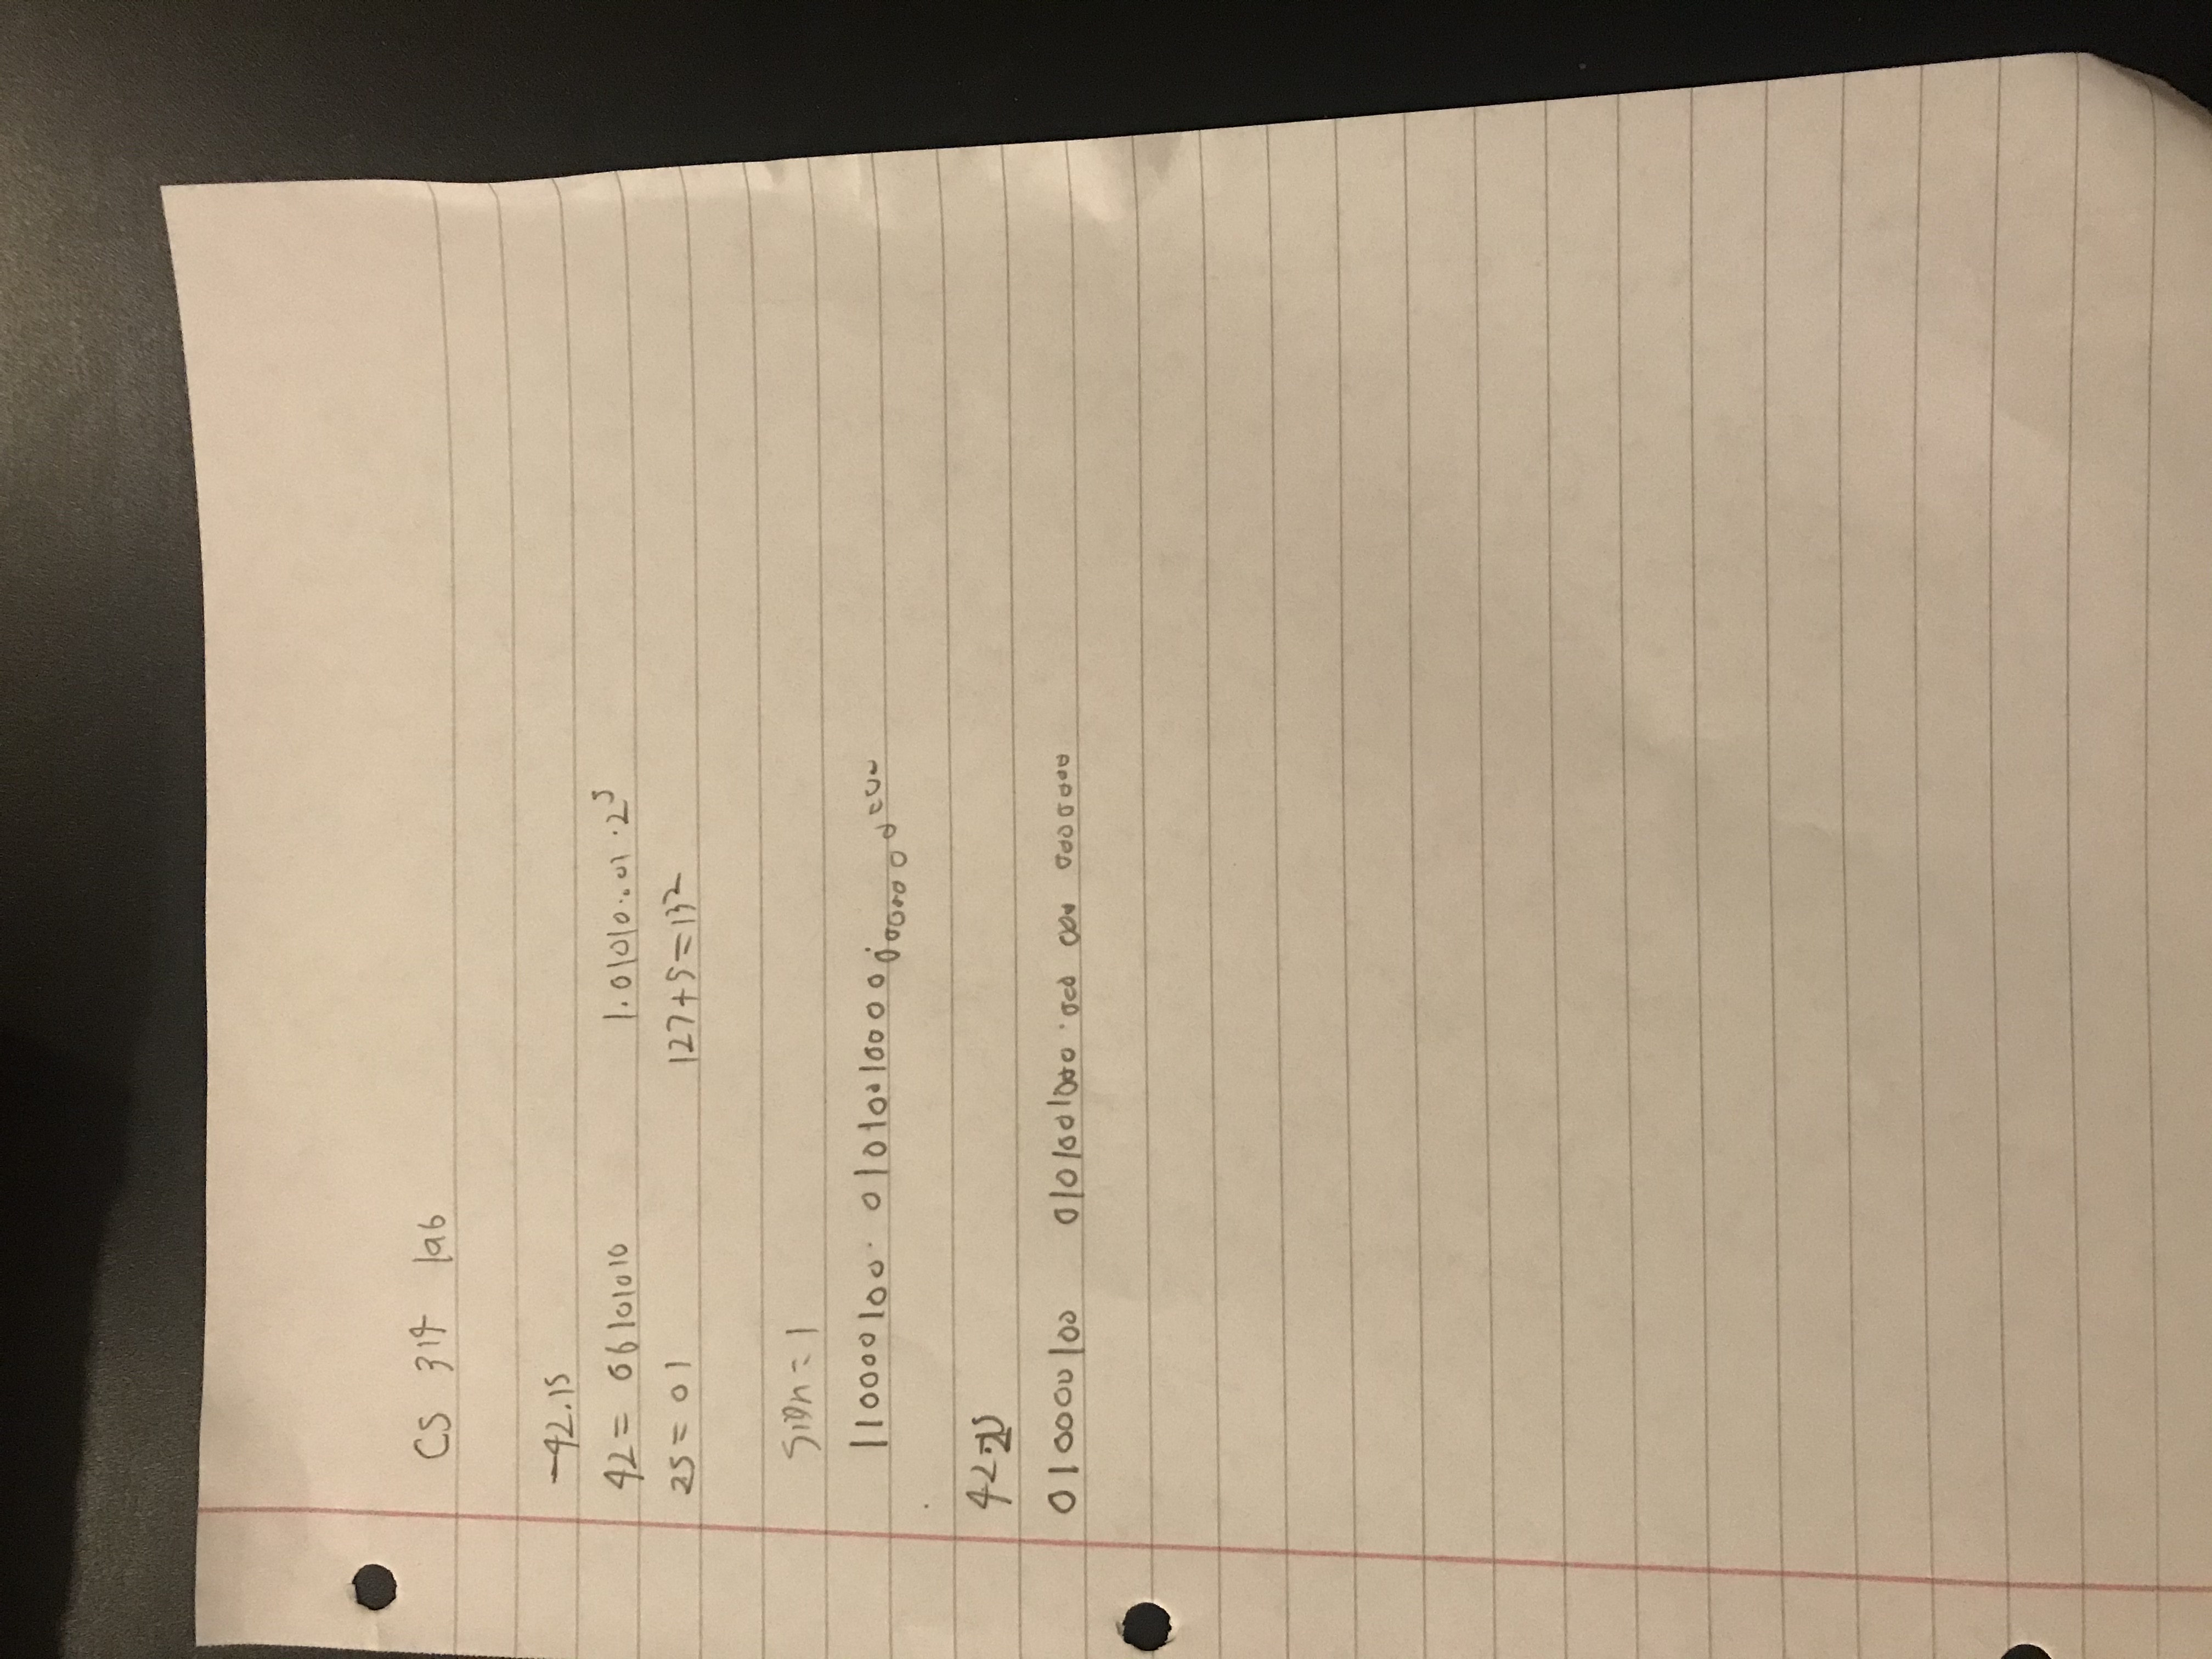 CS 314 lab
-42.15
42 = 00101010 1.01010..01 · 2^5
25 = 01 127+5=132
Sign = 1
110000100 · 01010010000000000000000
42.25
010000100 01010010000000000000000